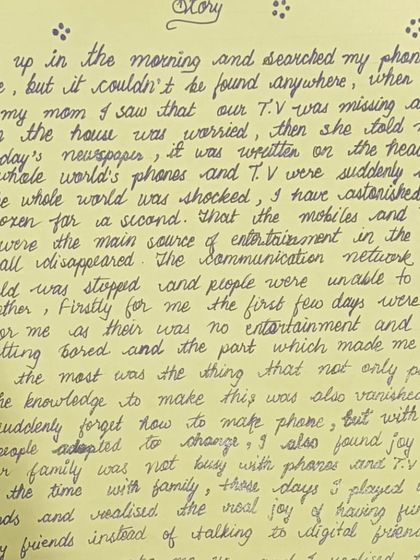 Story
up in the morning and searched my phon
e, but it couldn't be found anywhere, when
my mom I saw that our T.V was missing a
n the house was worried, then she told m
day's newspaper, it was written on the hea
whole world's phones and T.V were suddenly
e whole world was shocked, I have astonished
ozen far a second. That the mobiles and
were the main source of entertainment in the
all disappeared. The communication network
ld was stopped and people were unable to
ther, Firstly for me the first few days were
or me as their was no entertainment and
tting bored and the part which made me
the most was the thing that not only p
he knowledge to make this was also vanished
suddenly forget how to make phone, but with
people adopted to change, I also found joy
r family was not busy with phones and T.V
the time with family, those days I played w
nds and realised the real joy of having fun
y friends instead of talking to digital friends